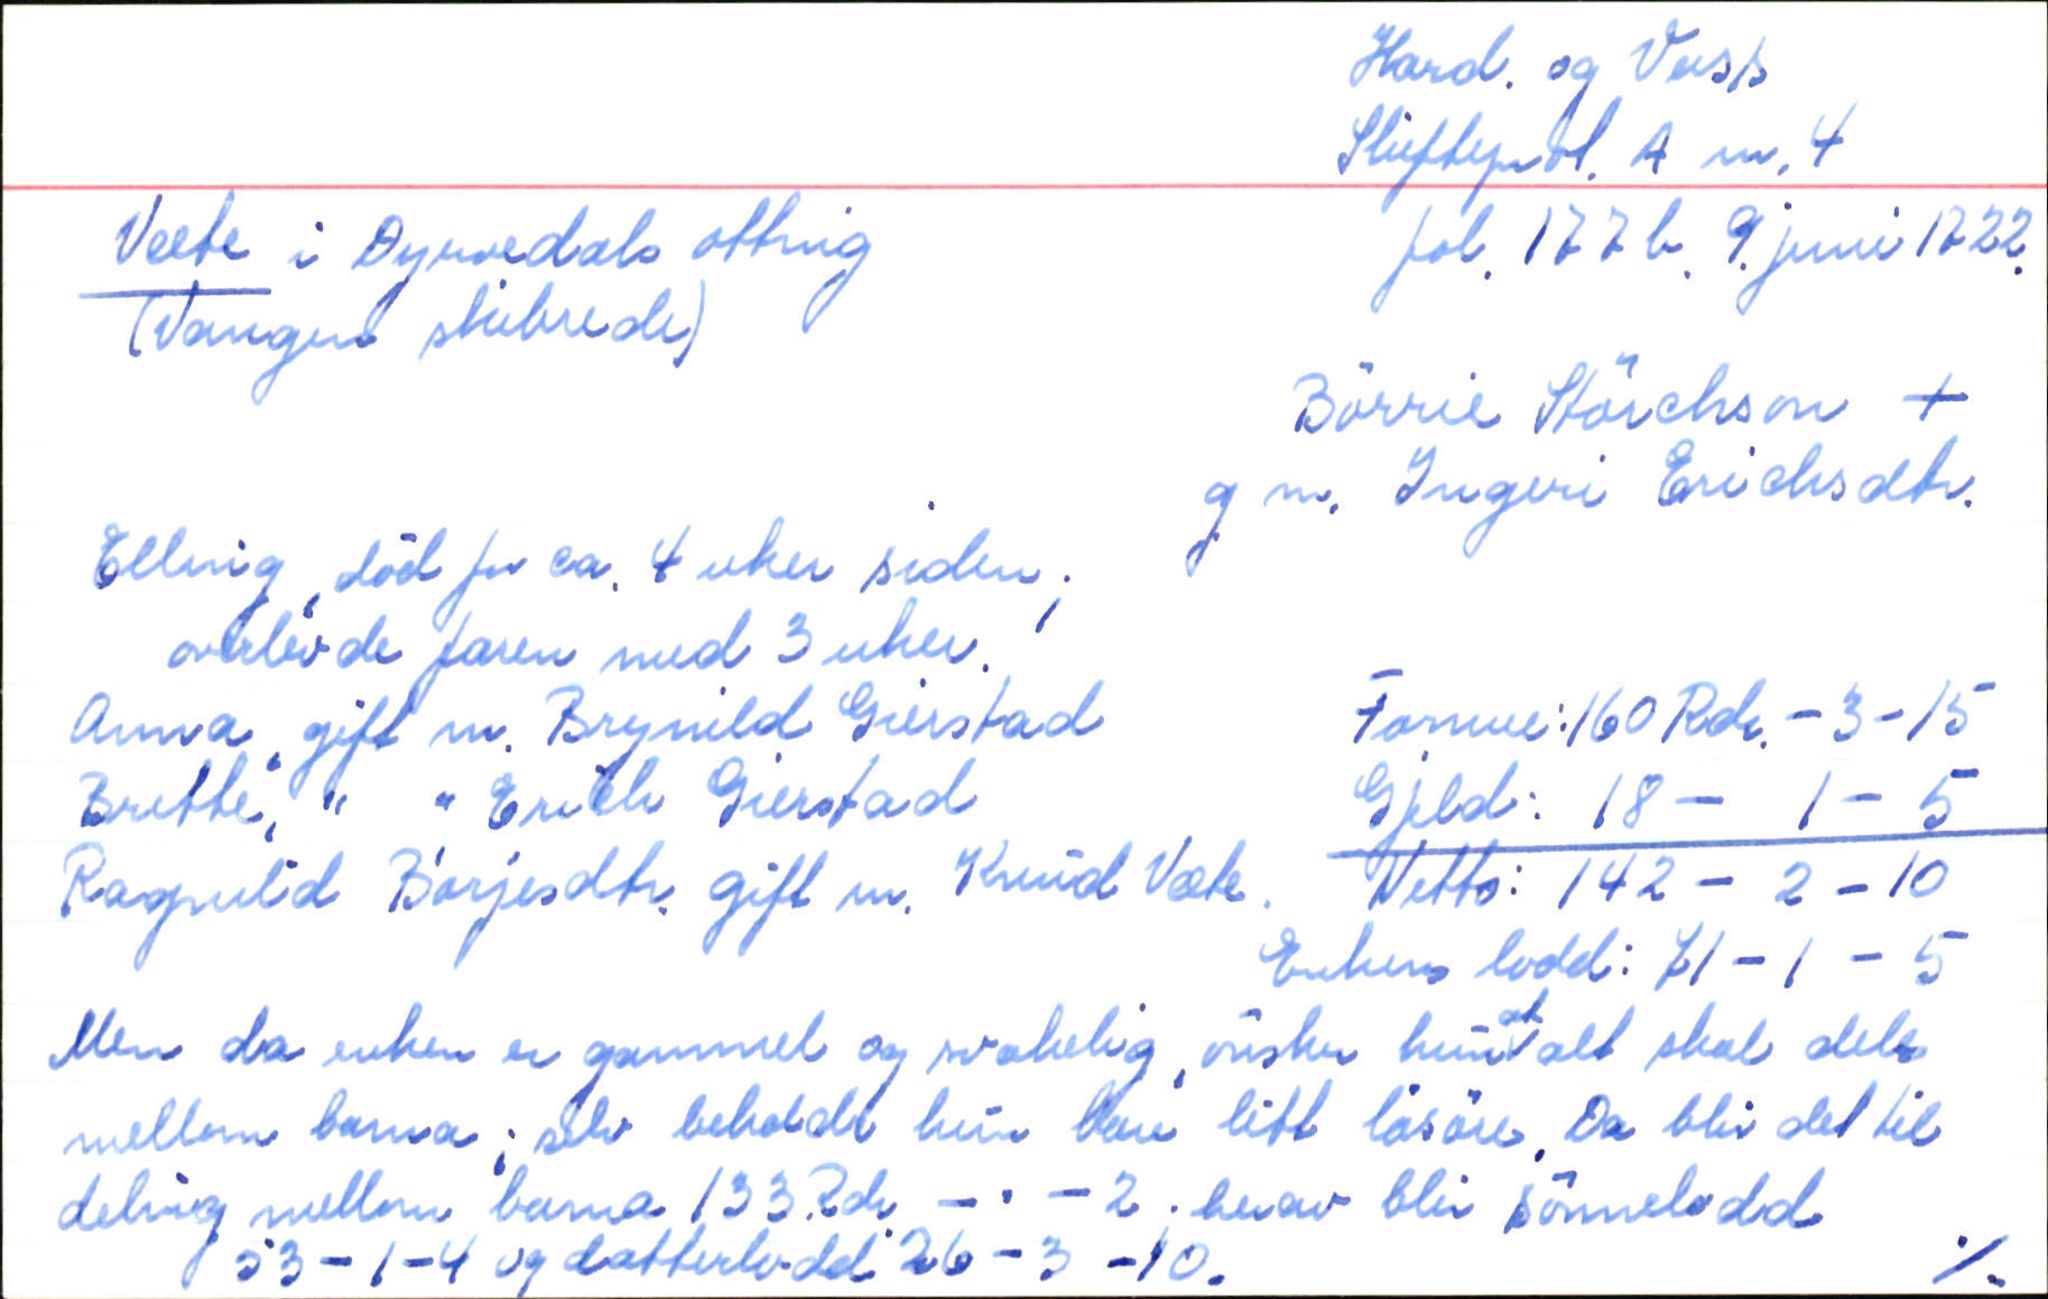 Hard. og Voss
Skifteprot. A nr. 4
Væte i Dyrvedals ottnig
fol. 177 b. 9. juni 1722.
(Vangens skibrede)
Börrie Störchson +
g m. Ingeri Erichsdtr.
Elling, död for ca. 4 uker siden;
overlevde faren med 3 uker.
Anna, gift m. Brynild Gierstad
Formue: 160 Rdr. - 3 - 15
Britthe, " " Erich Gierstad
Gjeld: 18 - 1 - 5
Ragnild Börjesdtr. gift m. Knud Væte.
Netto: 142 - 2 - 10
Enkens lodd: 71 - 1 - 5
Men da enken er gammel og svakelig, önsker hun at alt skal deles
mellom barna; selv beholdt hun bare litt lösöre. Da blir det til
deling mellom barna 133 Rdr - · - 2. herav blir sönnelodd
53 - 1 - 4 og datterlodd 26 - 3 - 10.
./.